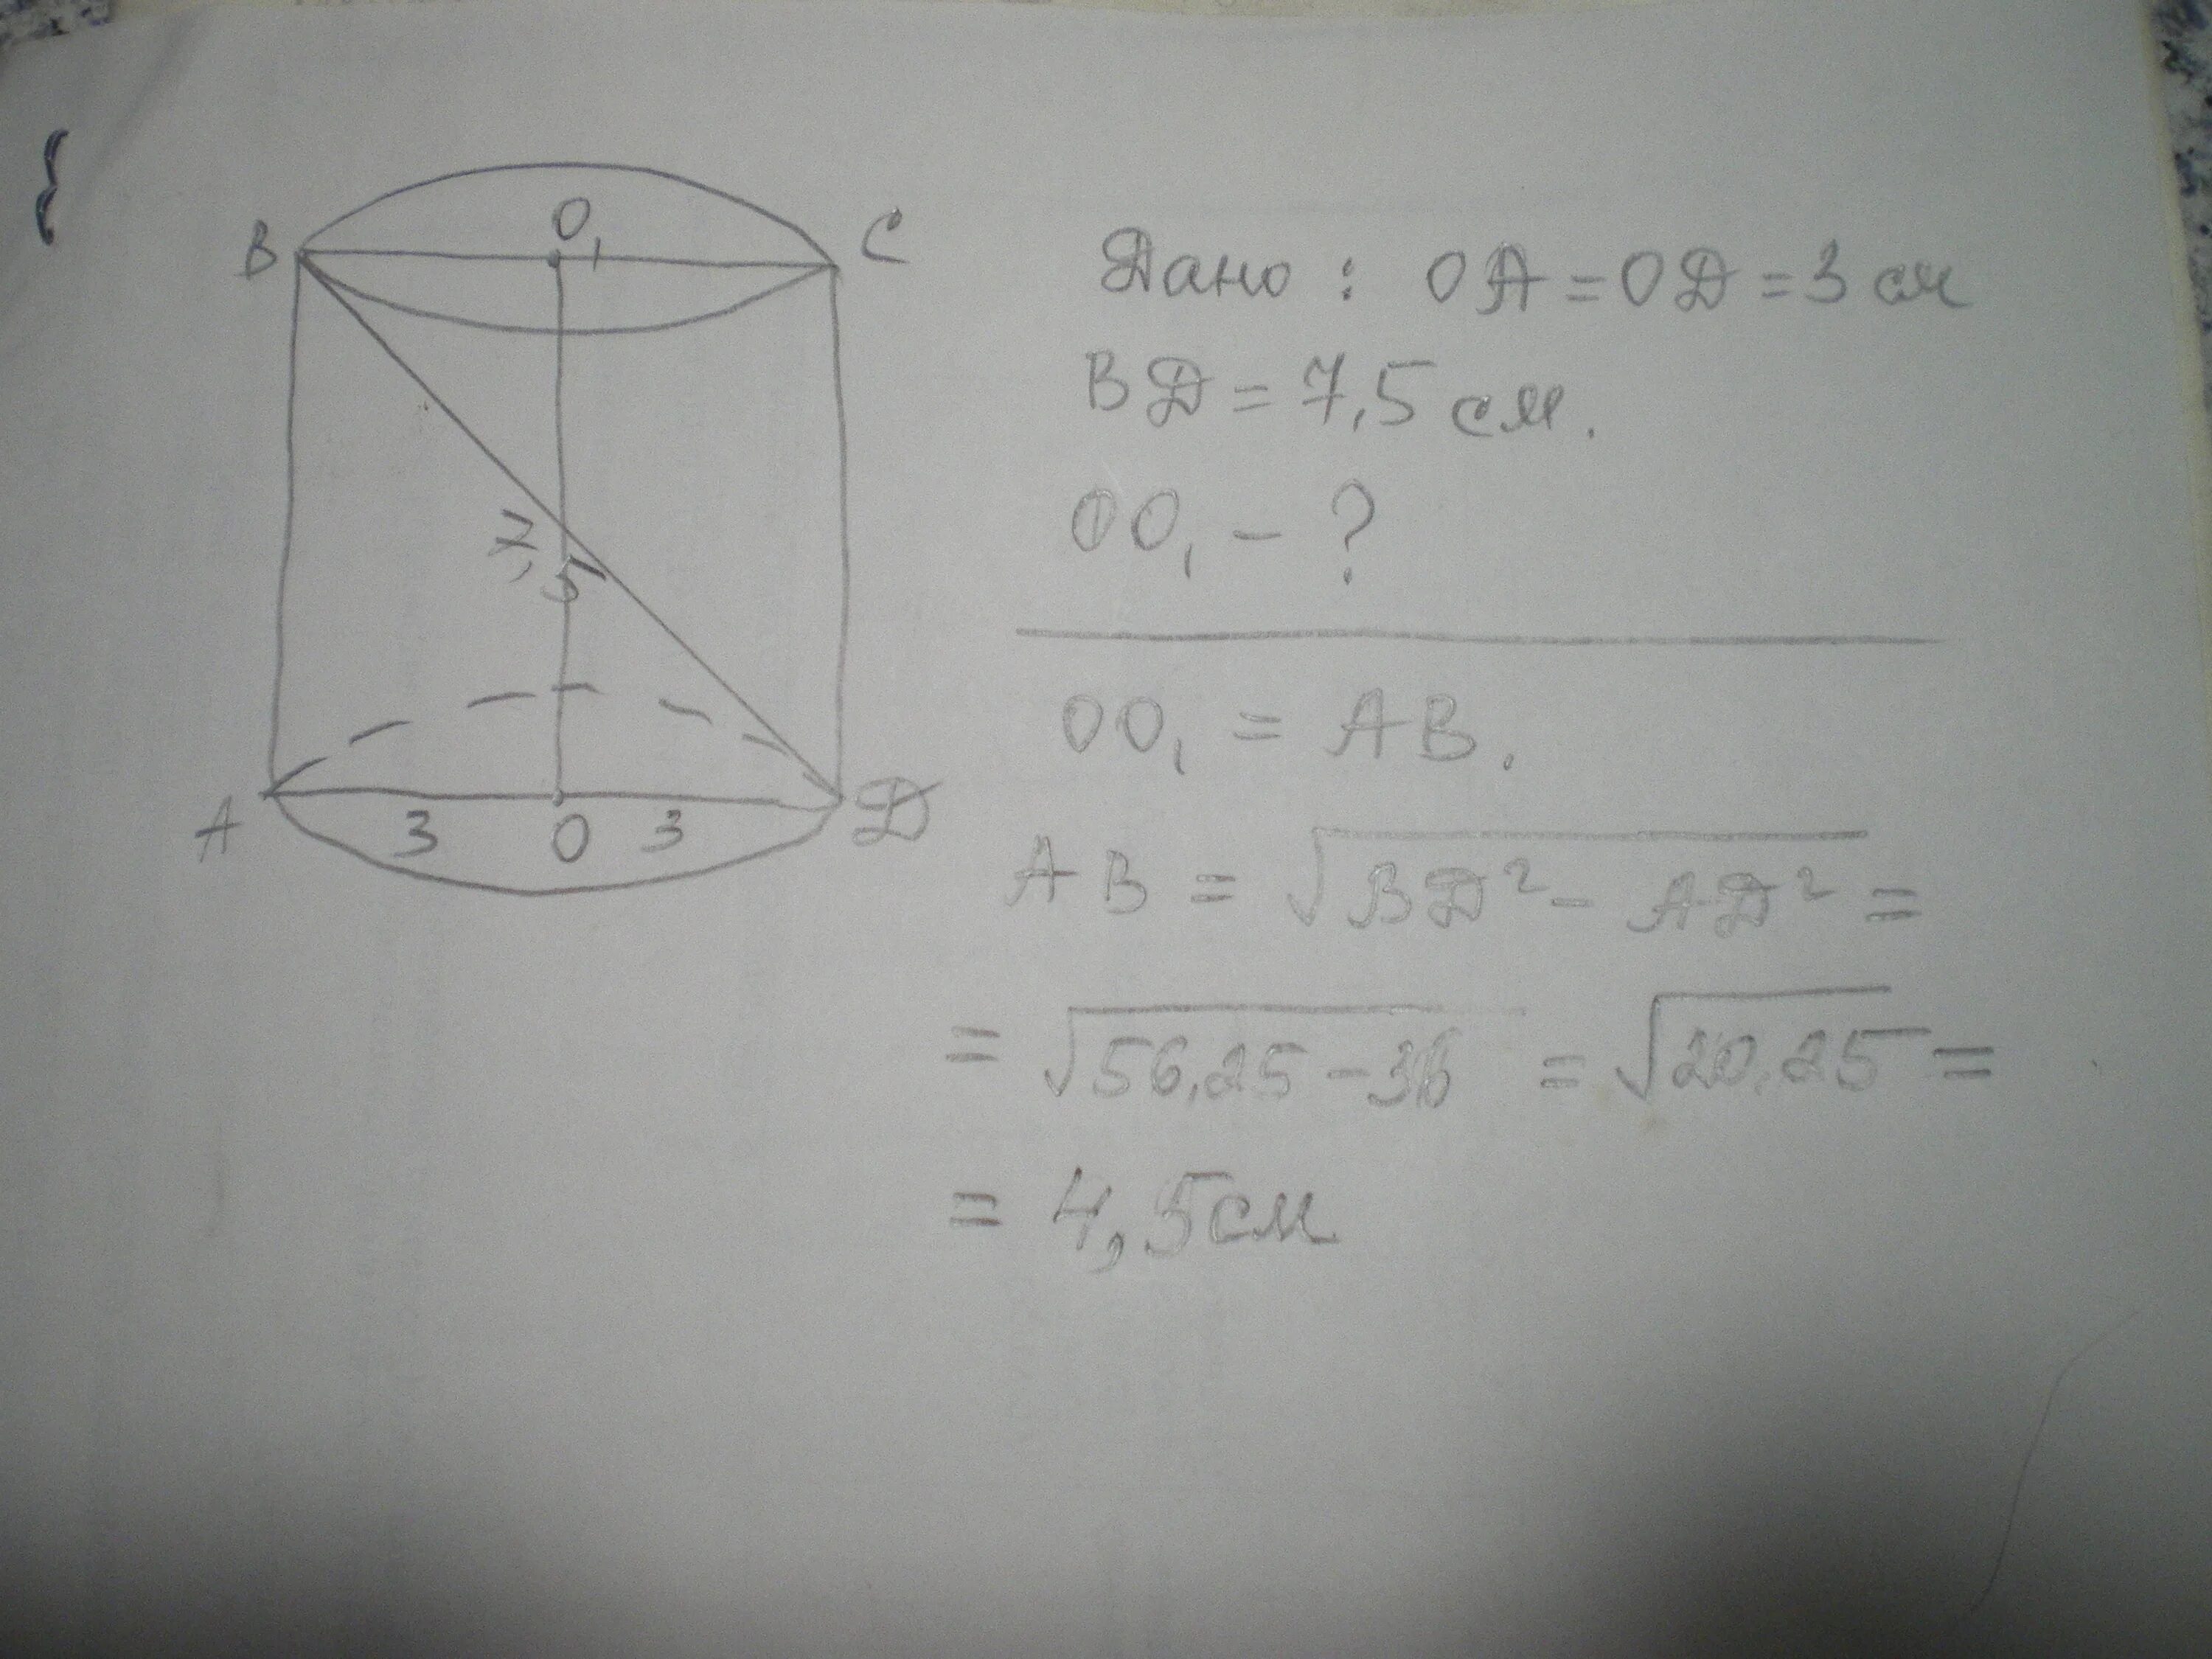 B
O₁
C
7,5
A
3
O
3
Д
Дано: OA = OД = 3 см
BД = 7,5 см.
OO₁ - ?
OO₁ = AB.
AB = √BД² - AД² =
= √56,25 - 36 = √20,25 =
= 4,5 см